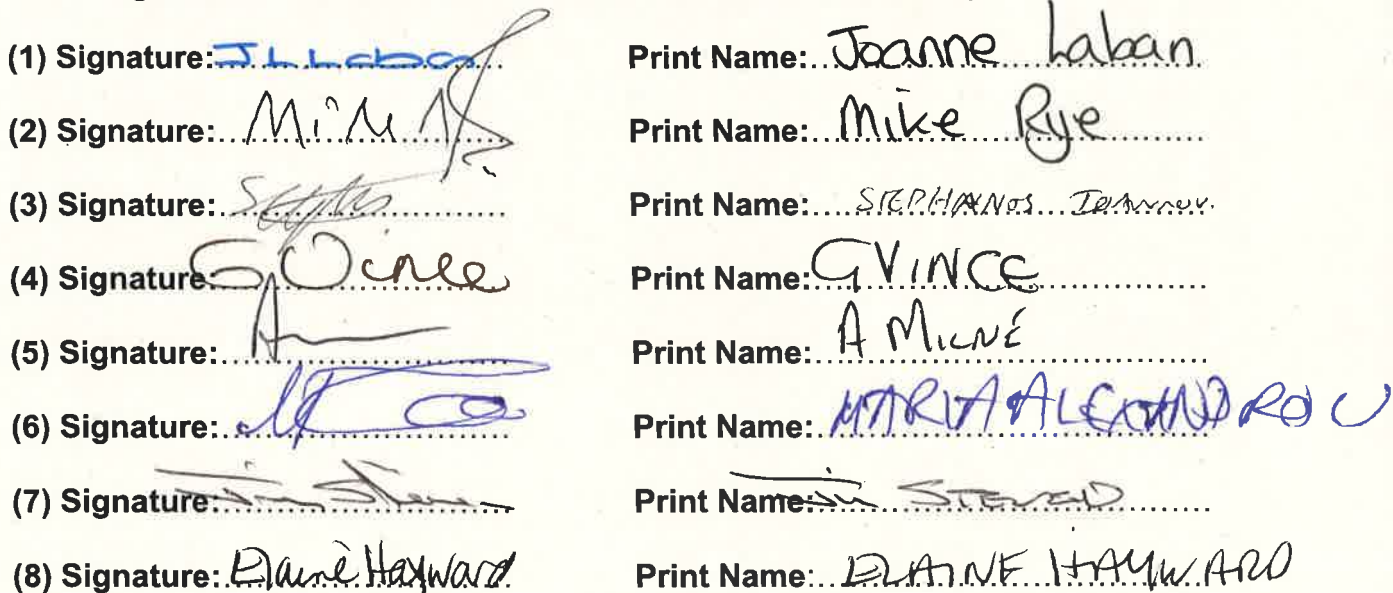 (1) Signature: J L Laban Print Name: Joanne Laban
(2) Signature: Print Name: Mike Rye
(3) Signature: Print Name: STEPHANOS IOANNOU.
(4) Signature: G Vince Print Name: G VINCE
(5) Signature: Print Name: A MILNE
(6) Signature: Print Name: MARIA ALEXANDROU
(7) Signature: Jim Print Name: Jim
(8) Signature: Elaine Hayward Print Name: ELAINE HAYWARD